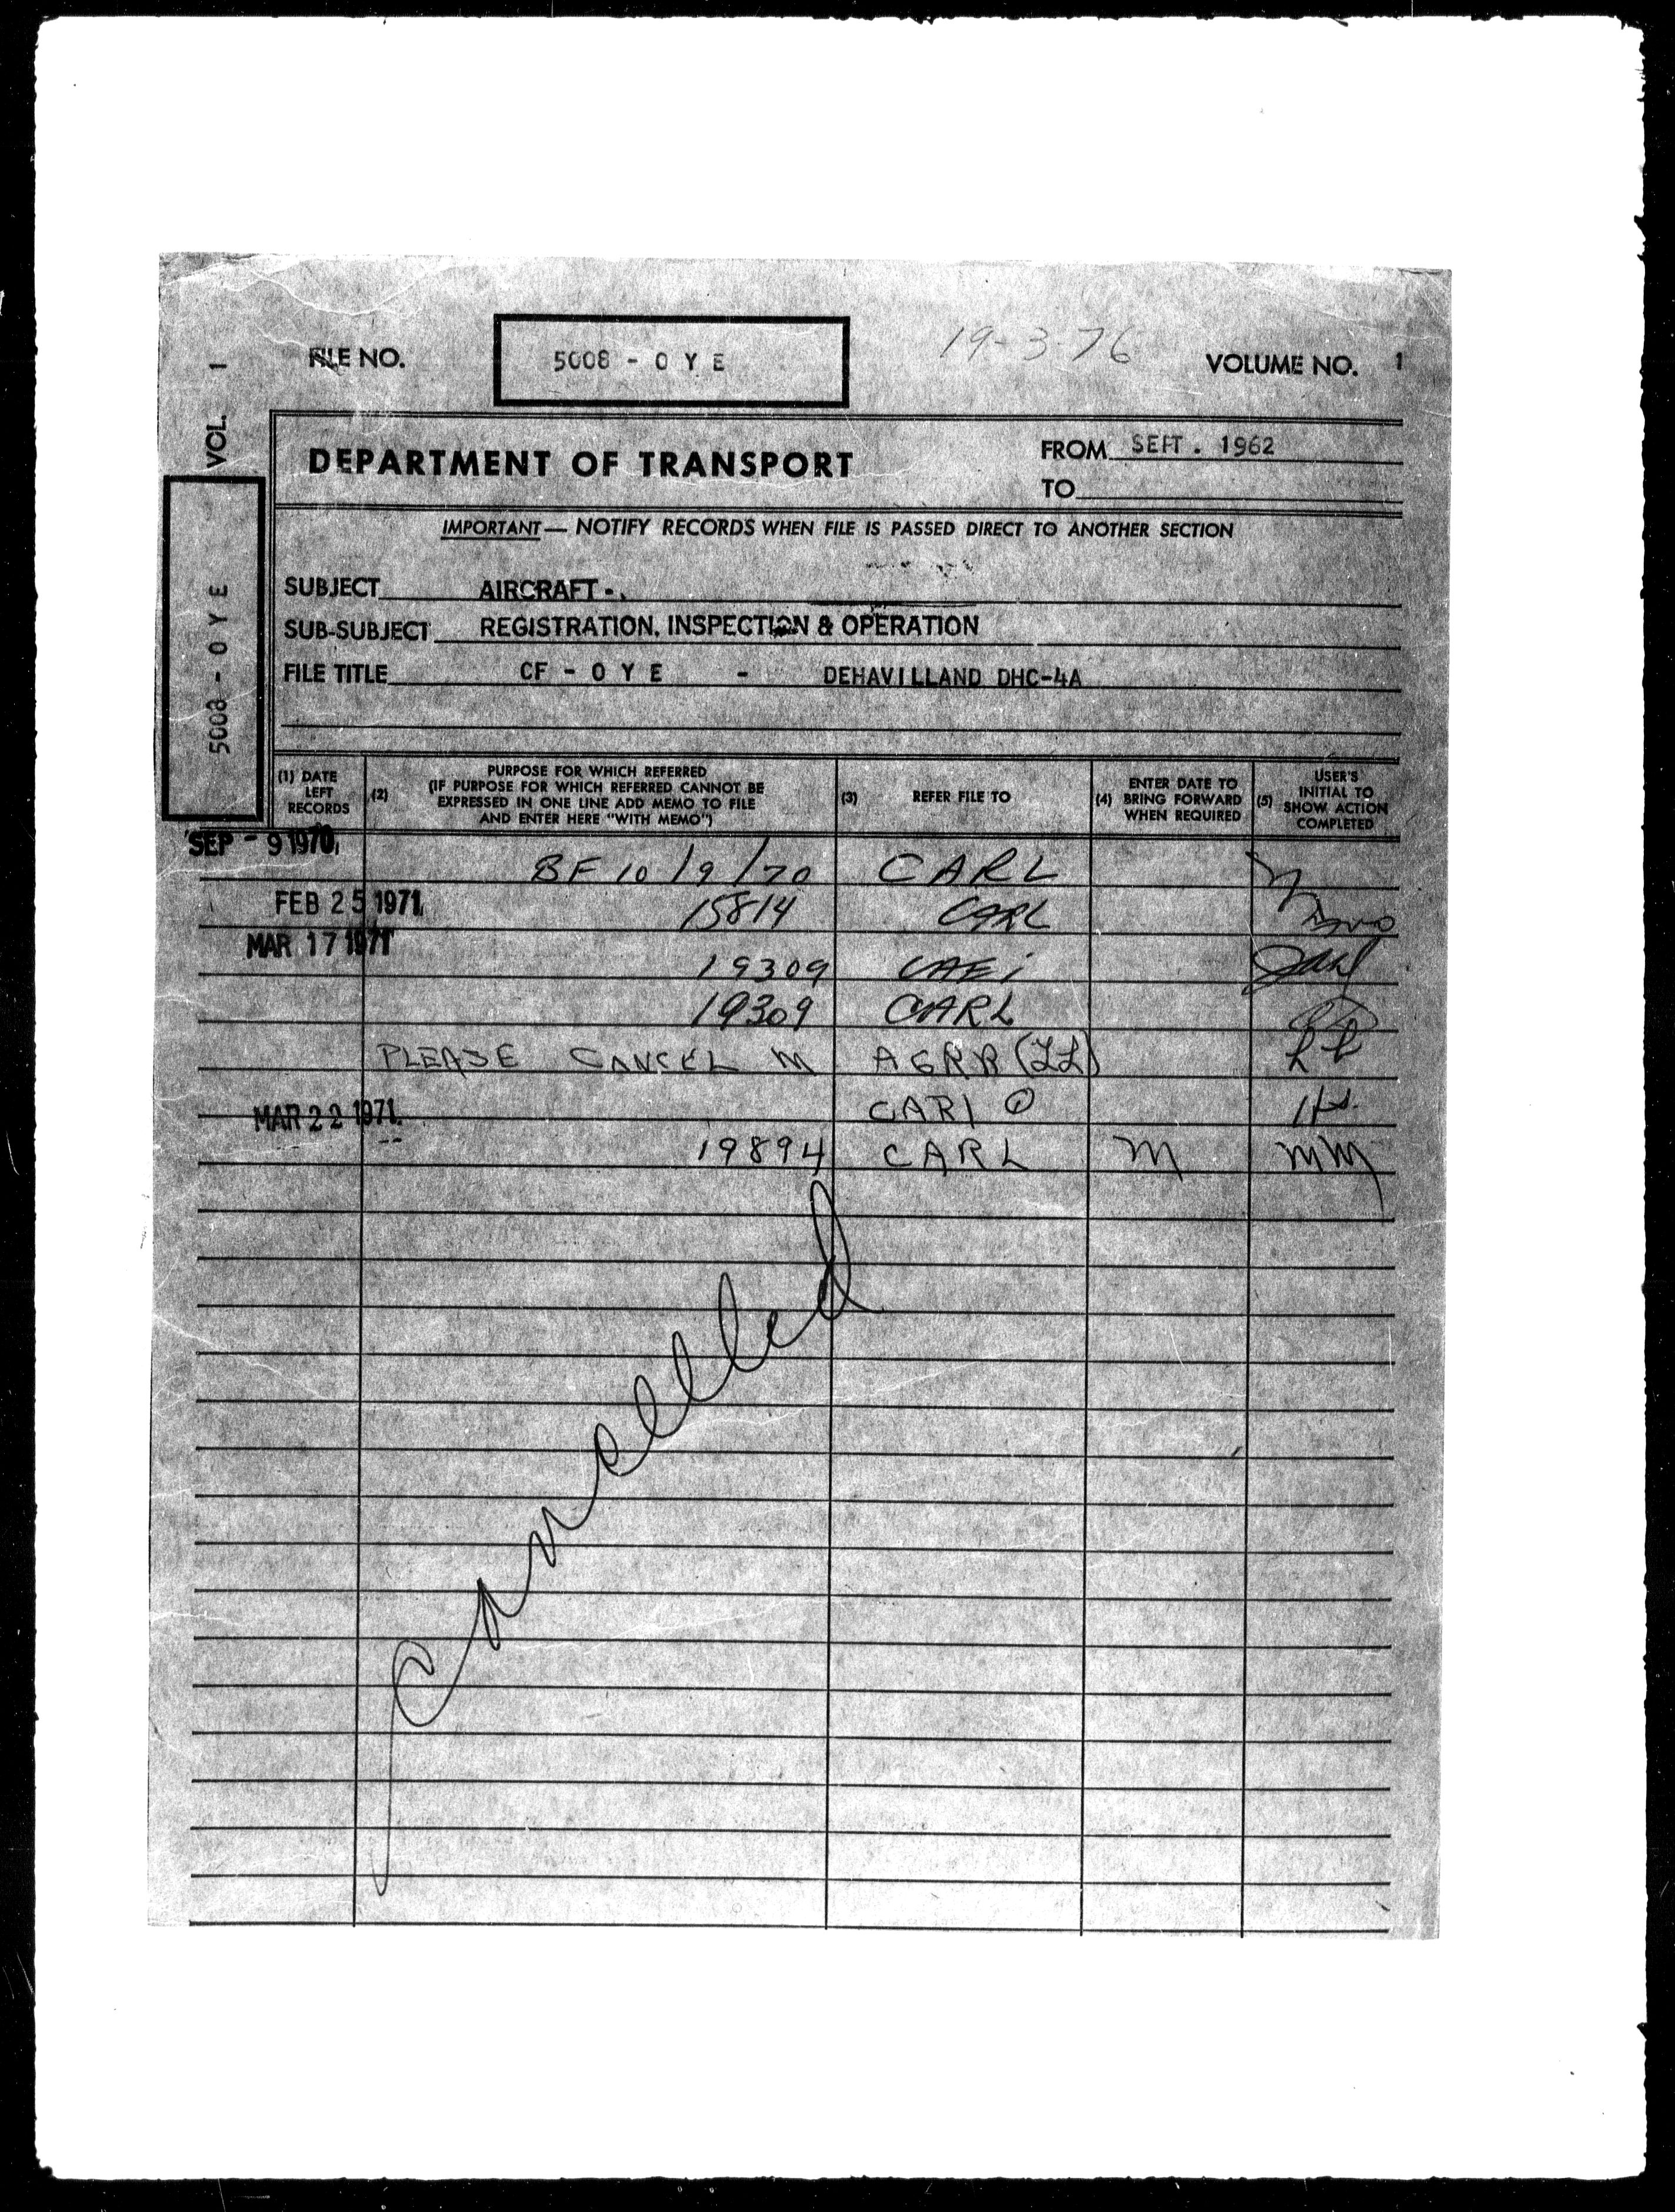 FILE NO. 5008 - O Y E 19-3-76 VOLUME NO. 1
VOL. 1
5008 - O Y E
DEPARTMENT OF TRANSPORT
FROM SEPT. 1962
TO
IMPORTANT — NOTIFY RECORDS WHEN FILE IS PASSED DIRECT TO ANOTHER SECTION
SUBJECT AIRCRAFT -
SUB-SUBJECT REGISTRATION, INSPECTION & OPERATION
FILE TITLE CF - O Y E - DEHAVILLAND DHC-4A
(1) DATE LEFT RECORDS
(2) PURPOSE FOR WHICH REFERRED
(IF PURPOSE FOR WHICH REFERRED CANNOT BE
EXPRESSED IN ONE LINE ADD MEMO TO FILE
AND ENTER HERE "WITH MEMO")
(3) REFER FILE TO
(4) ENTER DATE TO
BRING FORWARD
WHEN REQUIRED
(5) USER'S
INITIAL TO
SHOW ACTION
COMPLETED
SEP - 9 1970
BF 10/9/70 CARL
FEB 25 1971 15814 CARL
MAR 17 1971
19309 CAEI
19309 CARL
PLEASE CANCEL M AGRR (LL)
CARL
MAR 22 1971
19894 CARL M MM
Cancelled